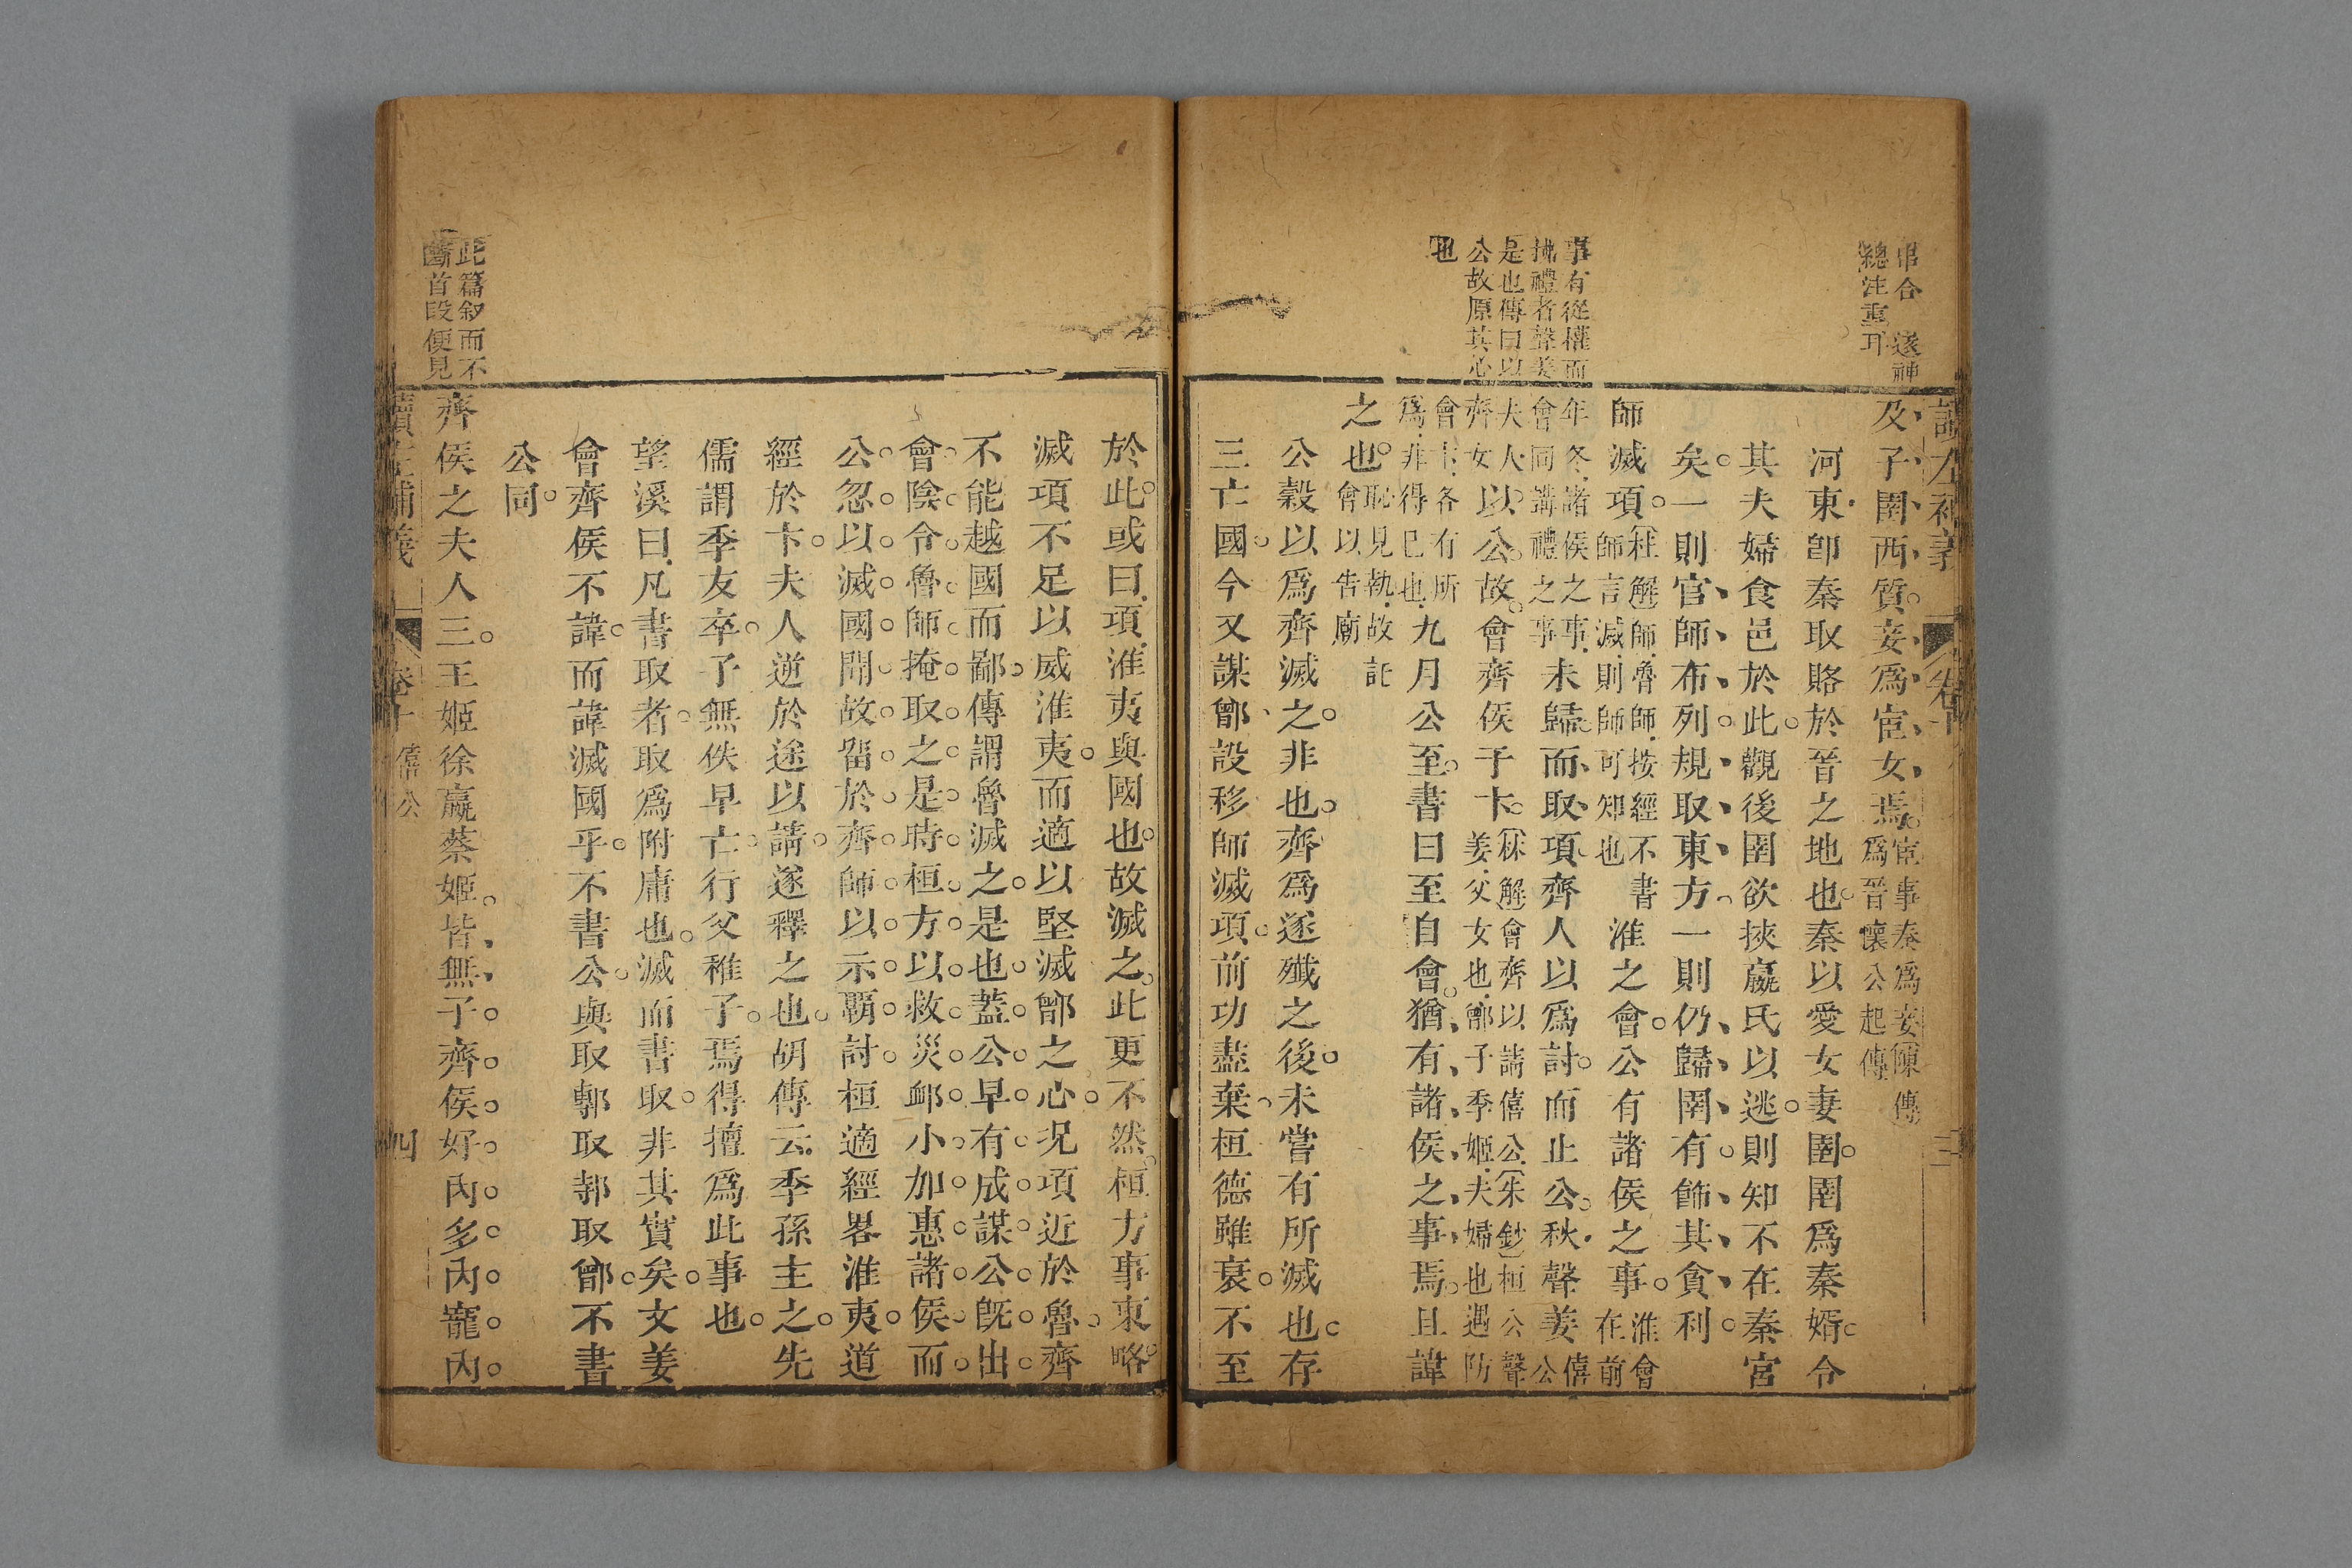 讀左補義 卷十 三
串合 遂神
總注重耳
事有從權而
拂禮者聲姜
是也傳曰以
公故原其心
也
及子圉西質妾爲宦女焉宦事秦爲妾陳傳
爲晉懷公起傳
河東卽秦取賂於晉之地也秦以愛女妻圉圉爲秦婿令
其夫婦食邑於此觀後圉欲挾嬴氏以逃則知不在秦宮
矣一則官師布列規取東方一則仍歸圉有飾其貪利
師滅項杜解師魯師按經不書
師言滅則師可知也淮之會公有諸侯之事淮會
在前
年冬諸侯之事
會同講禮之事未歸而取項齊人以爲討而止公秋聲姜僖
公
夫人
齊女以公故會齊侯于卞林解會齊以請僖公朱鈔桓公聲
姜父女也鄫子季姬夫婦也遇防
會卞各有所
爲非得已也九月公至書曰至自會猶有諸侯之事焉且諱
之也恥見執故託
會以告廟
公穀以爲齊滅之非也齊爲遂殲之後未嘗有所滅也存
三亡國今又謀鄫設移師滅項前功盡棄桓德雖衰不至
於此或曰項淮夷與國也故滅之此更不然桓方事東略
滅項不足以威淮夷而適以堅滅鄫之心況項近於魯齊
不能越國而鄙傳謂魯滅之是也蓋公早有成謀公旣出
會陰令魯師掩取之是時桓方以救災䘏小加惠諸侯而
公忽以滅國聞故留於齊師以示覇討桓適經畧淮夷道
經於卞夫人逆於途以請遂釋之也胡傳云季孫主之先
儒謂季友卒子無佚早亡行父稚子焉得擅爲此事也
望溪曰凡書取者取爲附庸也滅而書取非其實矣文姜
會齊侯不諱而諱滅國乎不書公與取鄟取邿取鄫不書
公同
此篇敘而不
斷首段便見
齊侯之夫人三王姬徐嬴蔡姬皆無子齊侯好內多內寵內
讀左補義 卷十 僖公 四